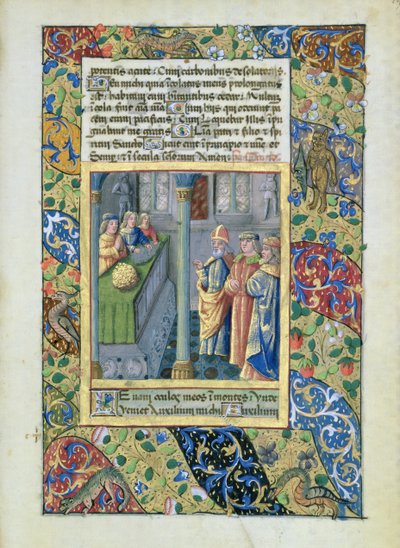 potentis acute : Cum carbonibus desolatoriis.
Heu michi quia incolatus meus prolongatus
est : habitavi cum habitantibus cedar : multum in
cola fuit anima mea Cum hys qui oderunt pa
cem eram pacificus : Cum loquebar illis impu
gnabant me gratis Gloria patri et filio et spi
ritui sancto Sicut erat in principio et nunc et
semper et in secula seculorum Amen
Levavi oculos meos in montes : unde
veniet auxilium michi Auxilium